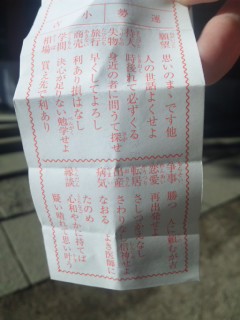 運勢 小
願望 思いのまゝです他
人の世話よくせよ
待人 時後れて必ずくる
失物 身近の者に問うて探せ
旅行 早くしてよろし
商売 利あり損はなし
学問 決心が足りない勉学せよ
相場 買え先で利あり
争事 勝つ 人に頼むが吉
恋愛 再出発せよ
転居 さし
出産 さわり
病気 なおる よき医師に
たのめ
縁談 心和やかに持てば
疑い晴れて思い叶う